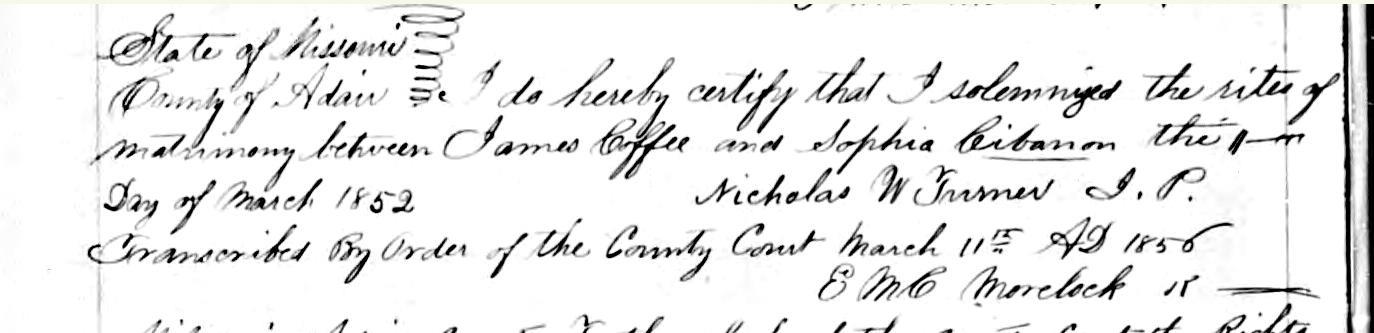 State of Missouri
County of Adair I do hereby certify that I solemnized the rites of
matrimony between James Coffee and Sophia Cibanon the 11
Day of March 1852 Nicholas W Turner J. P.
Transcribed By Order of the County Court March 11th AD 1856
E M C Morelock